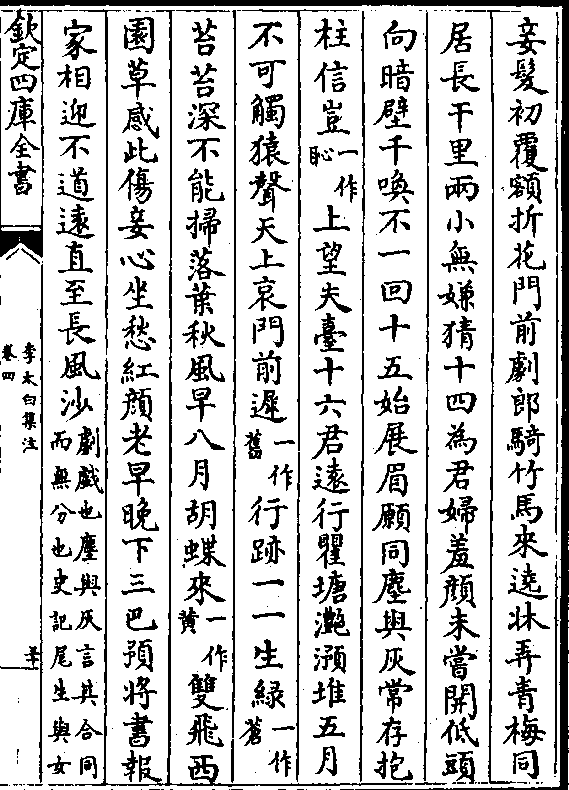 妾髮初覆額折花門前劇郎騎竹馬來遶牀弄青梅同
居長干里兩小無嫌猜十四為君婦羞顏未嘗開低頭
向暗壁千喚不一回十五始展眉願同塵與灰常存抱
柱信豈一作恥上望夫臺十六君遠行瞿塘灩澦堆五月
不可觸猿聲天上哀門前遲一作舊行跡一一生緑一作蒼
苔苔深不能掃落葉秋風早八月胡蝶來一作黄雙飛西
園草感此傷妾心坐愁紅顏老早晚下三巴預將書報
家相迎不道遠直至長風沙劇戲也塵與灰言其合同而無分也史記尾生與女
欽定四庫全書
李太白集注
卷四